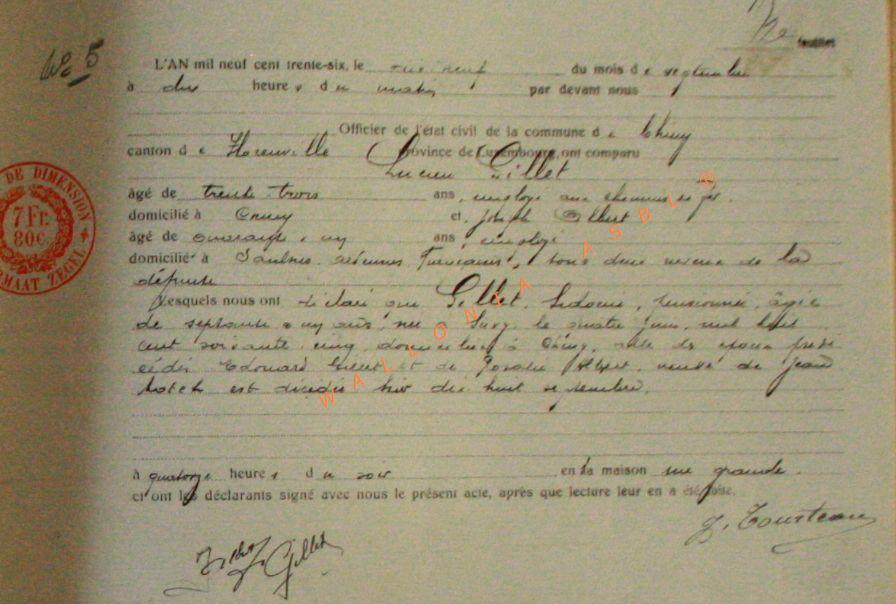 No 5
feuillet
L'AN mil neuf cent trente-six, le dix neuf du mois de septembre
à dix heures du matin par devant nous
Officier de l'état civil de la commune de Chiny
canton de Florenville Province de Luxembourg, ont comparu
Lucien Gillet
âgé de trente-trois ans, employé aux chemins de fer
domicilié à Chiny et Joseph Gillet
âgé de quarante un ans, employé
domicilié à Saulnes Ardennes Françaises, tous deux neveux de la
défunte
Lesquels nous ont déclaré que Gillet, Sidonie, pensionnée, âgée
de septante un ans, née Suxy le quatre juin mil huit
cent soixante cinq, domiciliée à Chiny, fille des époux
Edouard Gillet et de Rosalie veuve de Jean
est décédée hier dix huit septembre,
à quatorze heures du soir en sa maison rue grande.
et ont les déclarants signé avec nous le présent acte, après que lecture leur en a été faite.
Gillet
DE DIMENSION
7 Fr.
80c.
FORMAAT ZEGEL
WALLONIA ASBL ©